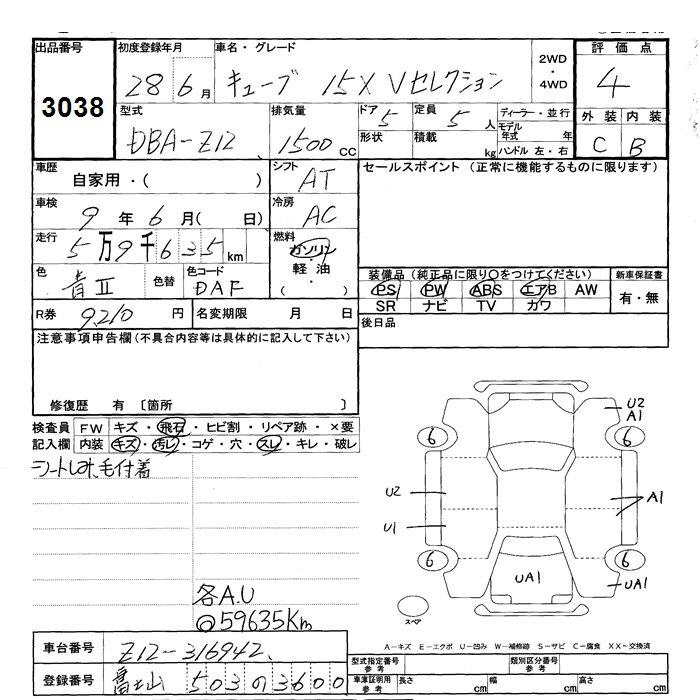 出品番号 初度登録年月 車名・グレード 2WD・4WD 評価点
3038 28 6月 キューブ 15X Vセレクション 4
型式 排気量 ドア 定員 ディーラー・並行 外装 内装
DBA-Z12 1500cc 5 5人 モデル年式 年 C B
形状 積載 kg ハンドル 左・右
車歴 シフト セールスポイント (正常に機能するものに限ります)
自家用・( ) AT
車検 冷房
9年6月( 日) AC
走行 燃料
5万9千635km ガソリン・軽油
色 色替 色コード ( )
青II DAF
装備品 (純正品に限り○をつけてください) 新車保証書
PS PW ABS エアB AW 有・無
SR ナビ TV カワ
R券 9,210円 名変期限 月 日
後日品
注意事項申告欄(不具合内容等は具体的に記入して下さい)
修復歴 有 〔箇所 〕
検査員 FW キズ・飛石・ヒビ割・リペア跡・×要
記入欄 内装 キズ・汚レ・コゲ・穴・スレ・キレ・破レ
毛付着
U2
A1
6 6
U2 A1
U1
6 6
UA1 UA1
スペア
各A.U
@59635Km
A-キズ E-エクボ U-凹み W-補修跡 S-サビ C-腐食 XX-交換済
車台番号 Z12-316942
登録番号 富士山 503 の 3600
型式指定番号 参考 類別区分番号 参考
車庫証明用 参考 長さ cm 幅 cm 高さ cm